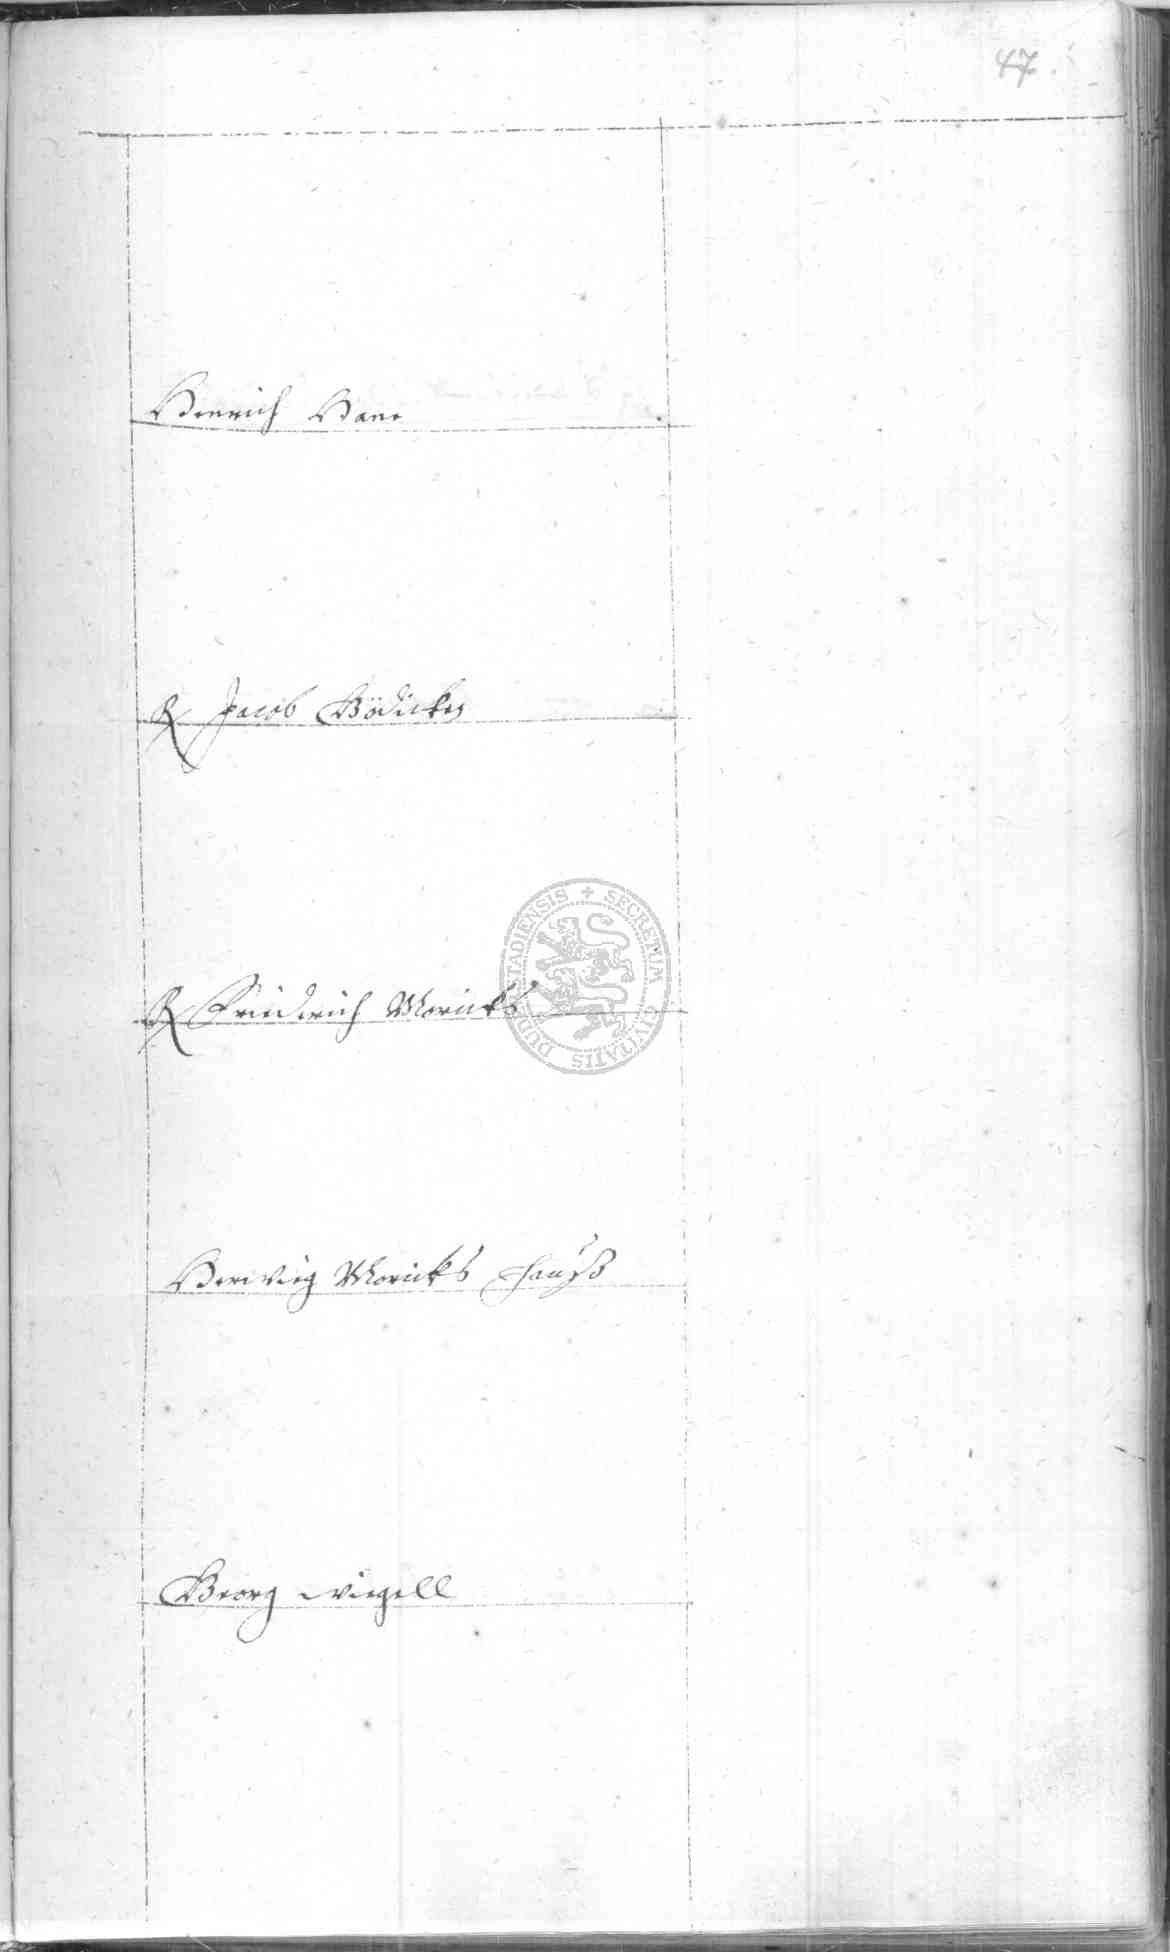 47
Henrich Hane
R Jacob Bödicker
R Friedrich Moricks
Herwig Moricks Hauß
Georg Wiegell
SECRETUM CIVITATIS DUDERSTADIENSIS